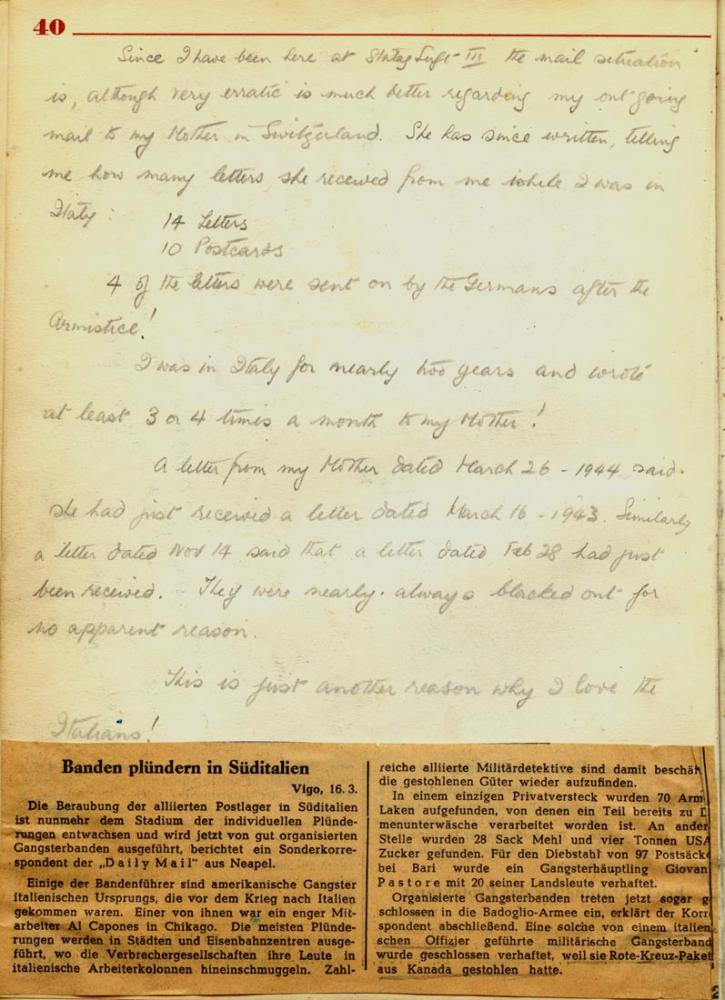 40
Since I have been here at Stalag Luft III the mail situation
is, although very erratic is much better regarding my out going
mail to my Mother in Switzerland. She has since written, telling
me how many letters she received from me while I was in
Italy :
14 Letters
10 Postcards
4 of the letters were sent on by the Germans after the
Armistice!
I was in Italy for nearly two years and wrote
at least 3 or 4 times a month to my Mother!
A letter from my Mother dated March 26 - 1944 said
she had just received a letter dated March 16 - 1943. Similarly
a letter dated Nov 14 said that a letter dated Feb 28 had just
been received. - They were nearly always blacked out for
no apparent reason.
This is just another reason why I love the
Italians!
Banden plündern in Süditalien
Vigo, 16. 3.
Die Beraubung der alliierten Postlager in Süditalien
ist nunmehr dem Stadium der individuellen Plünde-
rungen entwachsen und wird jetzt von gut organisierten
Gangsterbanden ausgeführt, berichtet ein Sonderkorre-
spondent der „Daily Mail" aus Neapel.
Einige der Bandenführer sind amerikanische Gangster
italienischen Ursprungs, die vor dem Krieg nach Italien
gekommen waren. Einer von ihnen war ein enger Mit-
arbeiter Al Capones in Chikago. Die meisten Plünde-
rungen werden in Städten und Eisenbahnzentren ausge-
führt, wo die Verbrechergesellschaften ihre Leute in
italienische Arbeiterkolonnen hineinschmuggeln. Zahl-
reiche alliierte Militärdetektive sind damit beschäf
die gestohlenen Güter wieder aufzufinden.
In einem einzigen Privatversteck wurden 70 Arm
Laken aufgefunden, von denen ein Teil bereits zu D
menunterwäsche verarbeitet worden ist. An ander
Stelle wurden 28 Sack Mehl und vier Tonnen USA
Zucker gefunden. Für den Diebstahl von 97 Postsäck
bei Bari wurde ein Gangsterhäuptling Giovan
Pastore mit 20 seiner Landsleute verhaftet.
Organisierte Gangsterbanden treten jetzt sogar g
schlossen in die Badoglio-Armee ein, erklärt der Korr
spondent abschließend. Eine solche von einem italien
schen Offizier geführte militärische Gangsterband
wurde geschlossen verhaftet, weil sie Rote-Kreuz-Paket
aus Kanada gestohlen hatte.